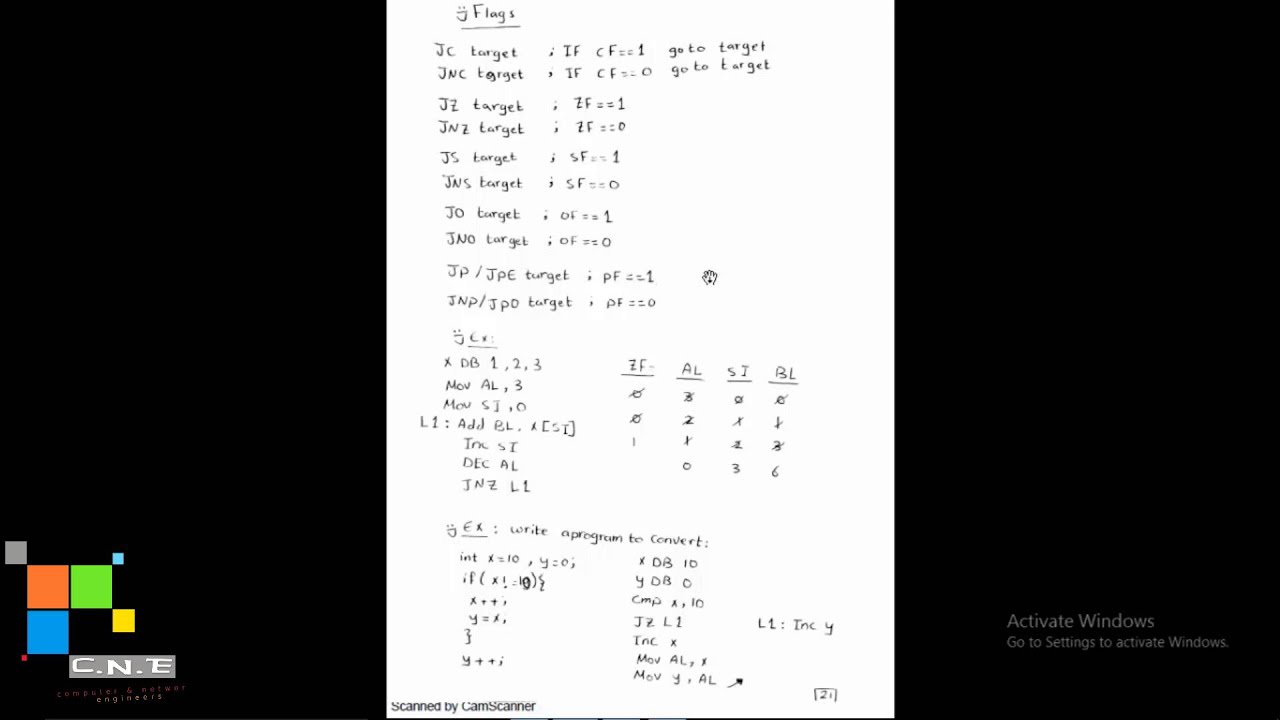 Flags
JC target ; IF CF==1 go to target
JNC target ; IF CF==0 go to target
JZ target ; ZF==1
JNZ target ; ZF==0
JS target ; SF==1
JNS target ; SF==0
JO target ; OF==1
JNO target ; OF==0
JP/JPE target ; PF==1
JNP/JPO target ; PF==0
Ex:
X DB 1,2,3
Mov AL, 3
Mov SI, 0
L1: Add BL, X[SI]
Inc SI
DEC AL
JNZ L1
ZF AL SI BL
0 3 0 0
0 2 1 1
1 1 2 3
0 3 6
Ex: write a program to convert:
int x=10, y=0;
if( x!=10){
x++;
y=x,
}
y++;
X DB 10
y DB 0
Cmp x, 10
JZ L1
Inc x
Mov AL, x
Mov y, AL
L1: Inc y
21
Scanned by CamScanner
C.N.E
computer & networ
engineers
Activate Windows
Go to Settings to activate Windows.